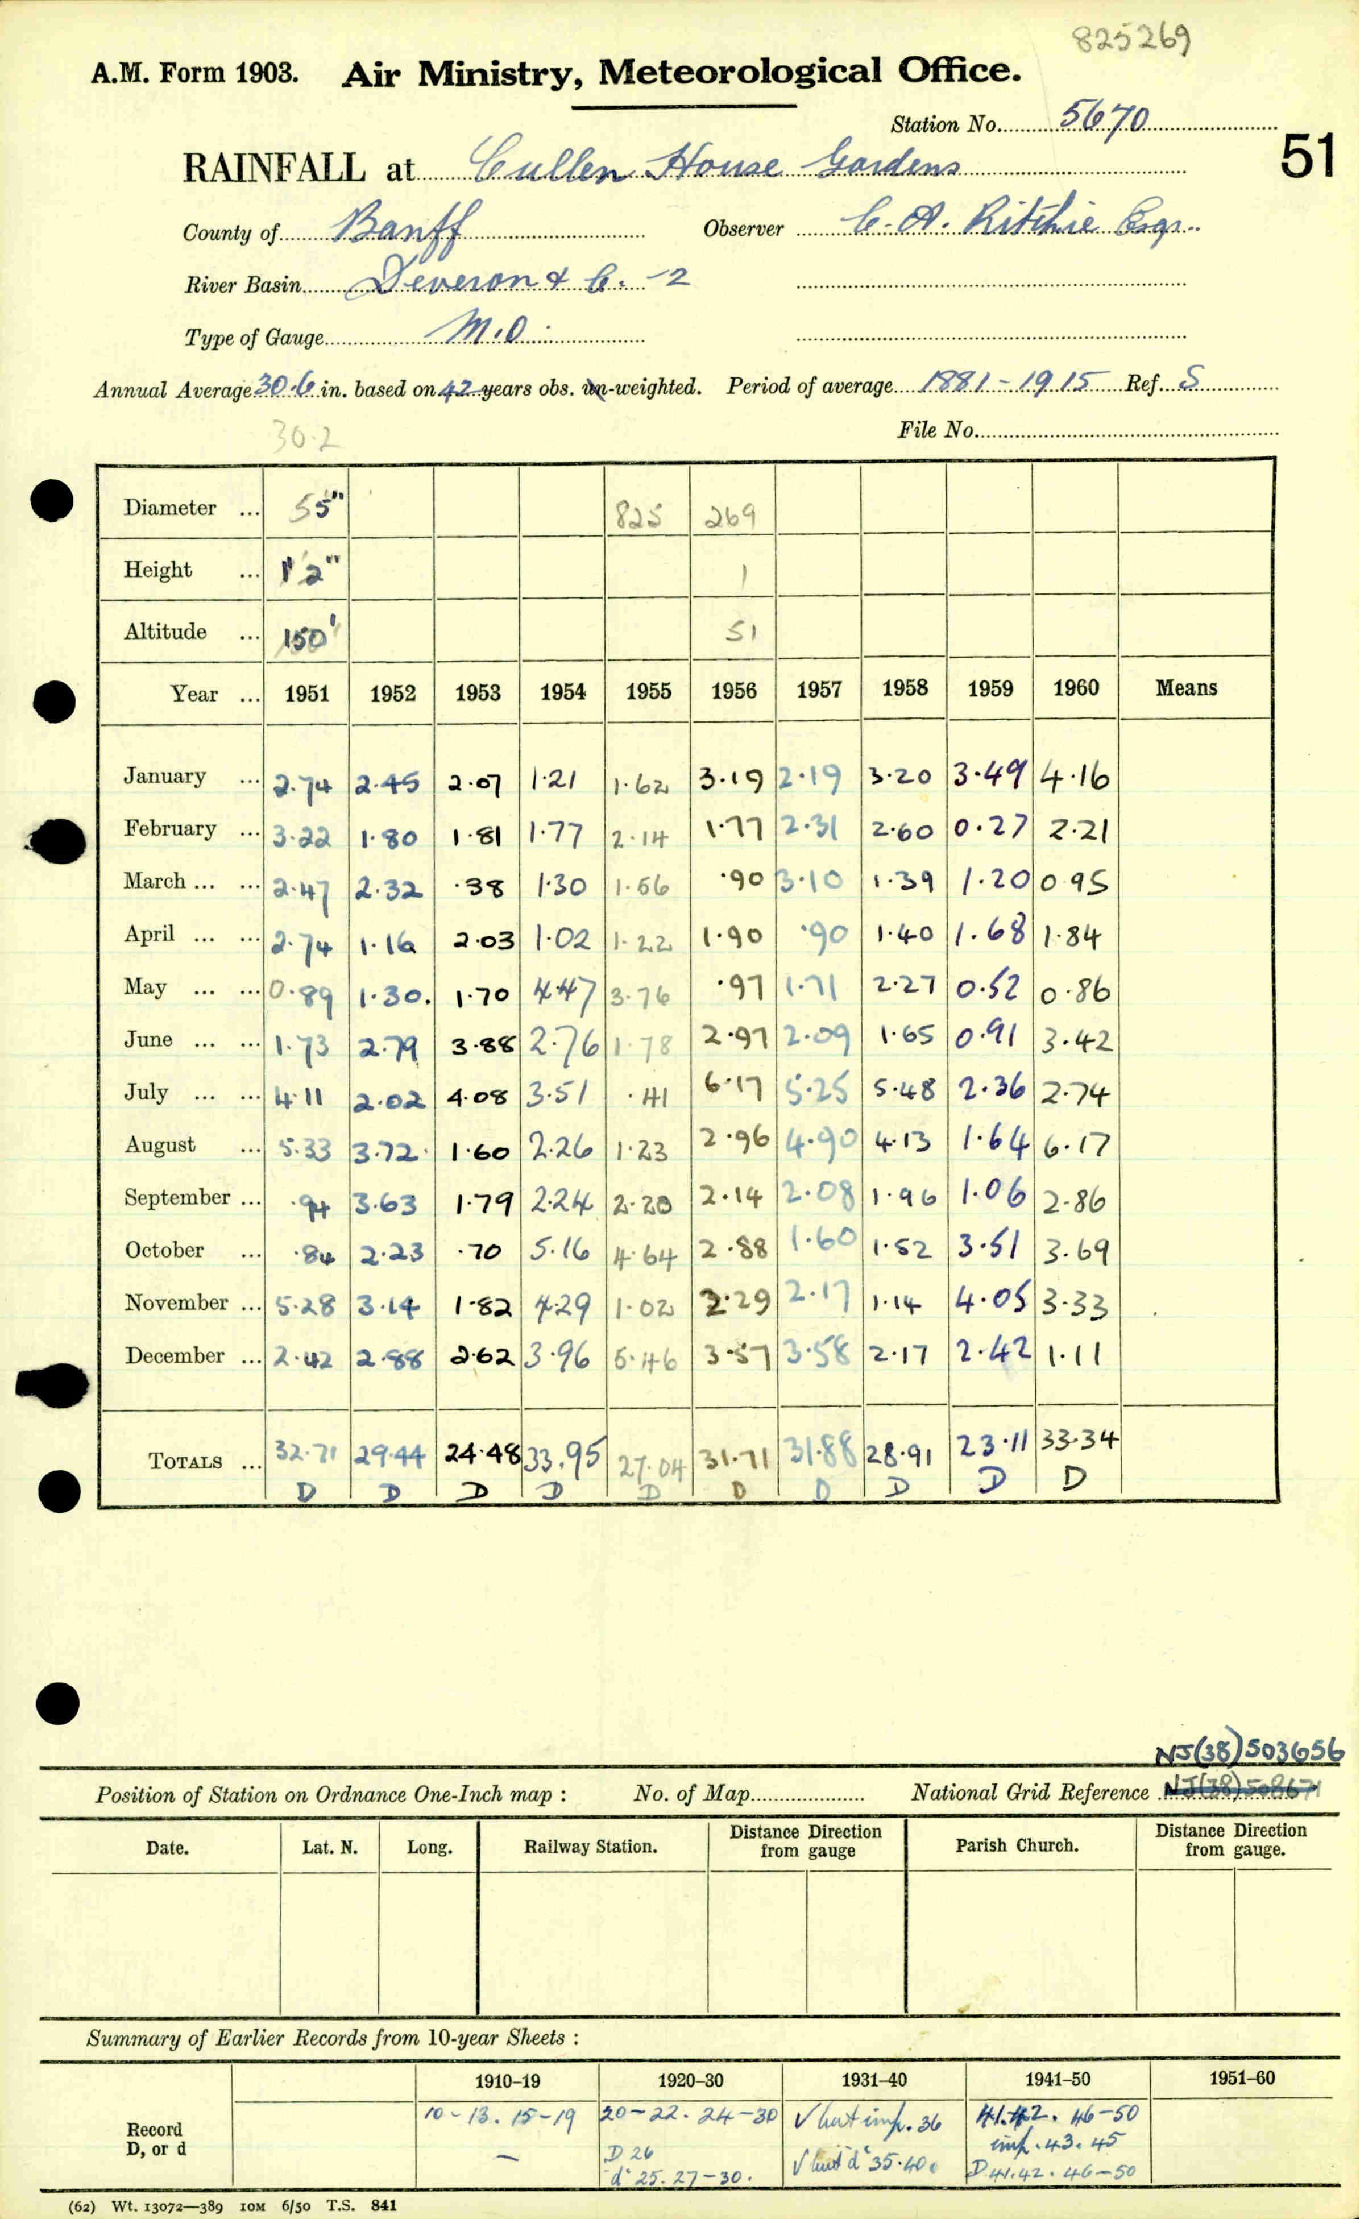 825269
A.M. Form 1903. Air Ministry, Meteorological Office.
Station No. 5670
51
RAINFALL at Cullen House Gardens
County of Banff Observer C. A. Ritchie Esqr.
River Basin Deveron & C. -2
Type of Gauge M.O.
Annual Average 30.6 in. based on 42 years obs. un-weighted. Period of average 1881-1915 Ref. S
30.2
File No.
Diameter ... 5" 825 269
Height ... 1' 2" 1
Altitude ... 150' 51
Year ... 1951 1952 1953 1954 1955 1956 1957 1958 1959 1960 Means
January ... 2.74 2.45 2.07 1.21 1.62 3.19 2.19 3.20 3.49 4.16
February ... 3.22 1.80 1.81 1.77 2.14 1.77 2.31 2.60 0.27 2.21
March ... ... 2.47 2.32 .38 1.30 1.56 .90 3.10 1.39 1.20 0.95
April ... ... 2.74 1.16 2.03 1.02 1.22 1.90 .90 1.40 1.68 1.84
May ... ... 0.89 1.30. 1.70 4.47 3.76 .97 1.71 2.27 0.52 0.86
June ... ... 1.73 2.79 3.88 2.76 1.78 2.97 2.09 1.65 0.91 3.42
July ... ... 4.11 2.02 4.08 3.51 .41 6.17 5.25 5.48 2.36 2.74
August ... 5.33 3.72 1.60 2.26 1.23 2.96 4.90 4.13 1.64 6.17
September ... .94 3.63 1.79 2.24 2.20 2.14 2.08 1.96 1.06 2.86
October ... .84 2.23 .70 5.16 4.64 2.88 1.60 1.52 3.51 3.69
November ... 5.28 3.14 1.82 4.29 1.02 2.29 2.17 1.14 4.05 3.33
December ... 2.42 2.88 2.62 3.96 5.46 3.57 3.58 2.17 2.42 1.11
TOTALS ... 32.71 29.44 24.48 33.95 27.04 31.71 31.88 28.91 23.11 33.34
D D D D D D D D D D
NJ(38)503656
Position of Station on Ordnance One-Inch map : No. of Map National Grid Reference NJ(38)508671
Date. Lat. N. Long. Railway Station. Distance Direction from gauge Parish Church. Distance Direction from gauge.
Summary of Earlier Records from 10-year Sheets :
1910–19 1920–30 1931–40 1941–50 1951–60
Record 10-13. 15-19 20-22. 24-30 V but imp. 36 41.42. 46-50
imp. 43. 45
D, or d — D 26 V but 'd' 35.40. D 41.42. 46-50
'd' 25. 27-30.
(62) Wt. 13072—389 10M 6/50 T.S. 841